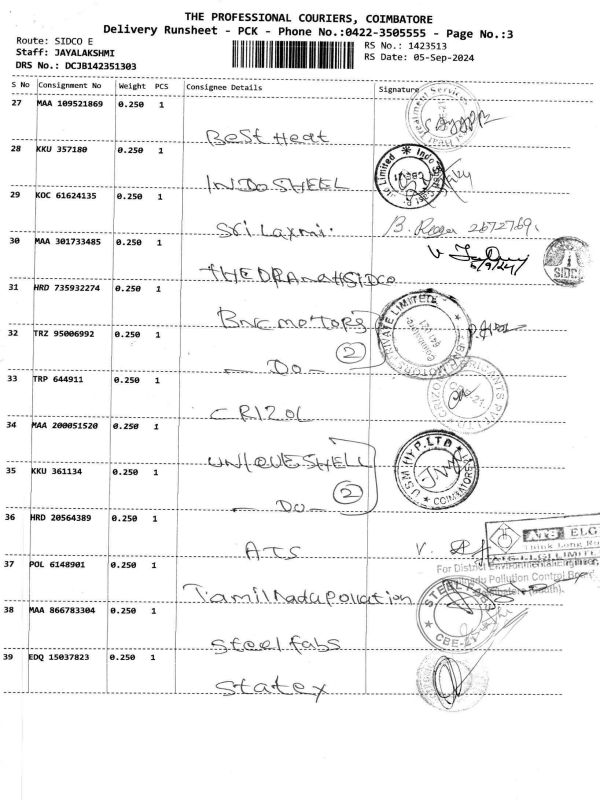 THE PROFESSIONAL COURIERS, COIMBATORE
Delivery Runsheet - PCK - Phone No.:0422-3505555 - Page No.:3
Route: SIDCO E
Staff: JAYALAKSHMI
DRS No.: DCJB142351303
RS No.: 1423513
RS Date: 05-Sep-2024
S No Consignment No Weight PCS Consignee Details Signature
27 MAA 109521869 0.250 1
Best Heat
28 KKU 357180 0.250 1
INDOSHEEL
29 KOC 61624135 0.250 1
Sri Laxmi. 2672769
30 MAA 301733485 0.250 1
5/9/24
SIDC
31 HRD 735932274 0.250 1
BNC MOTORS
32 TRZ 95006992 0.250 1
2
- Do -
33 TRP 644911 0.250 1
CRIZOL
34 MAA 200051520 0.250 1
UNIQUESHELL
U.S.M (HY) P.LTD
COIMBATORE
35 KKU 361134 0.250 1
2
- Do -
36 HRD 20564389 0.250 1
ATS
ATS ELG
37 POL 6148901 0.250 1
For District Environmental Engineer,
Pollution Control Board
Tamil Nadu Pollution
38 MAA 866783304 0.250 1
CBE-21
Steel fabs
39 EDQ 15037823 0.250 1
Statex